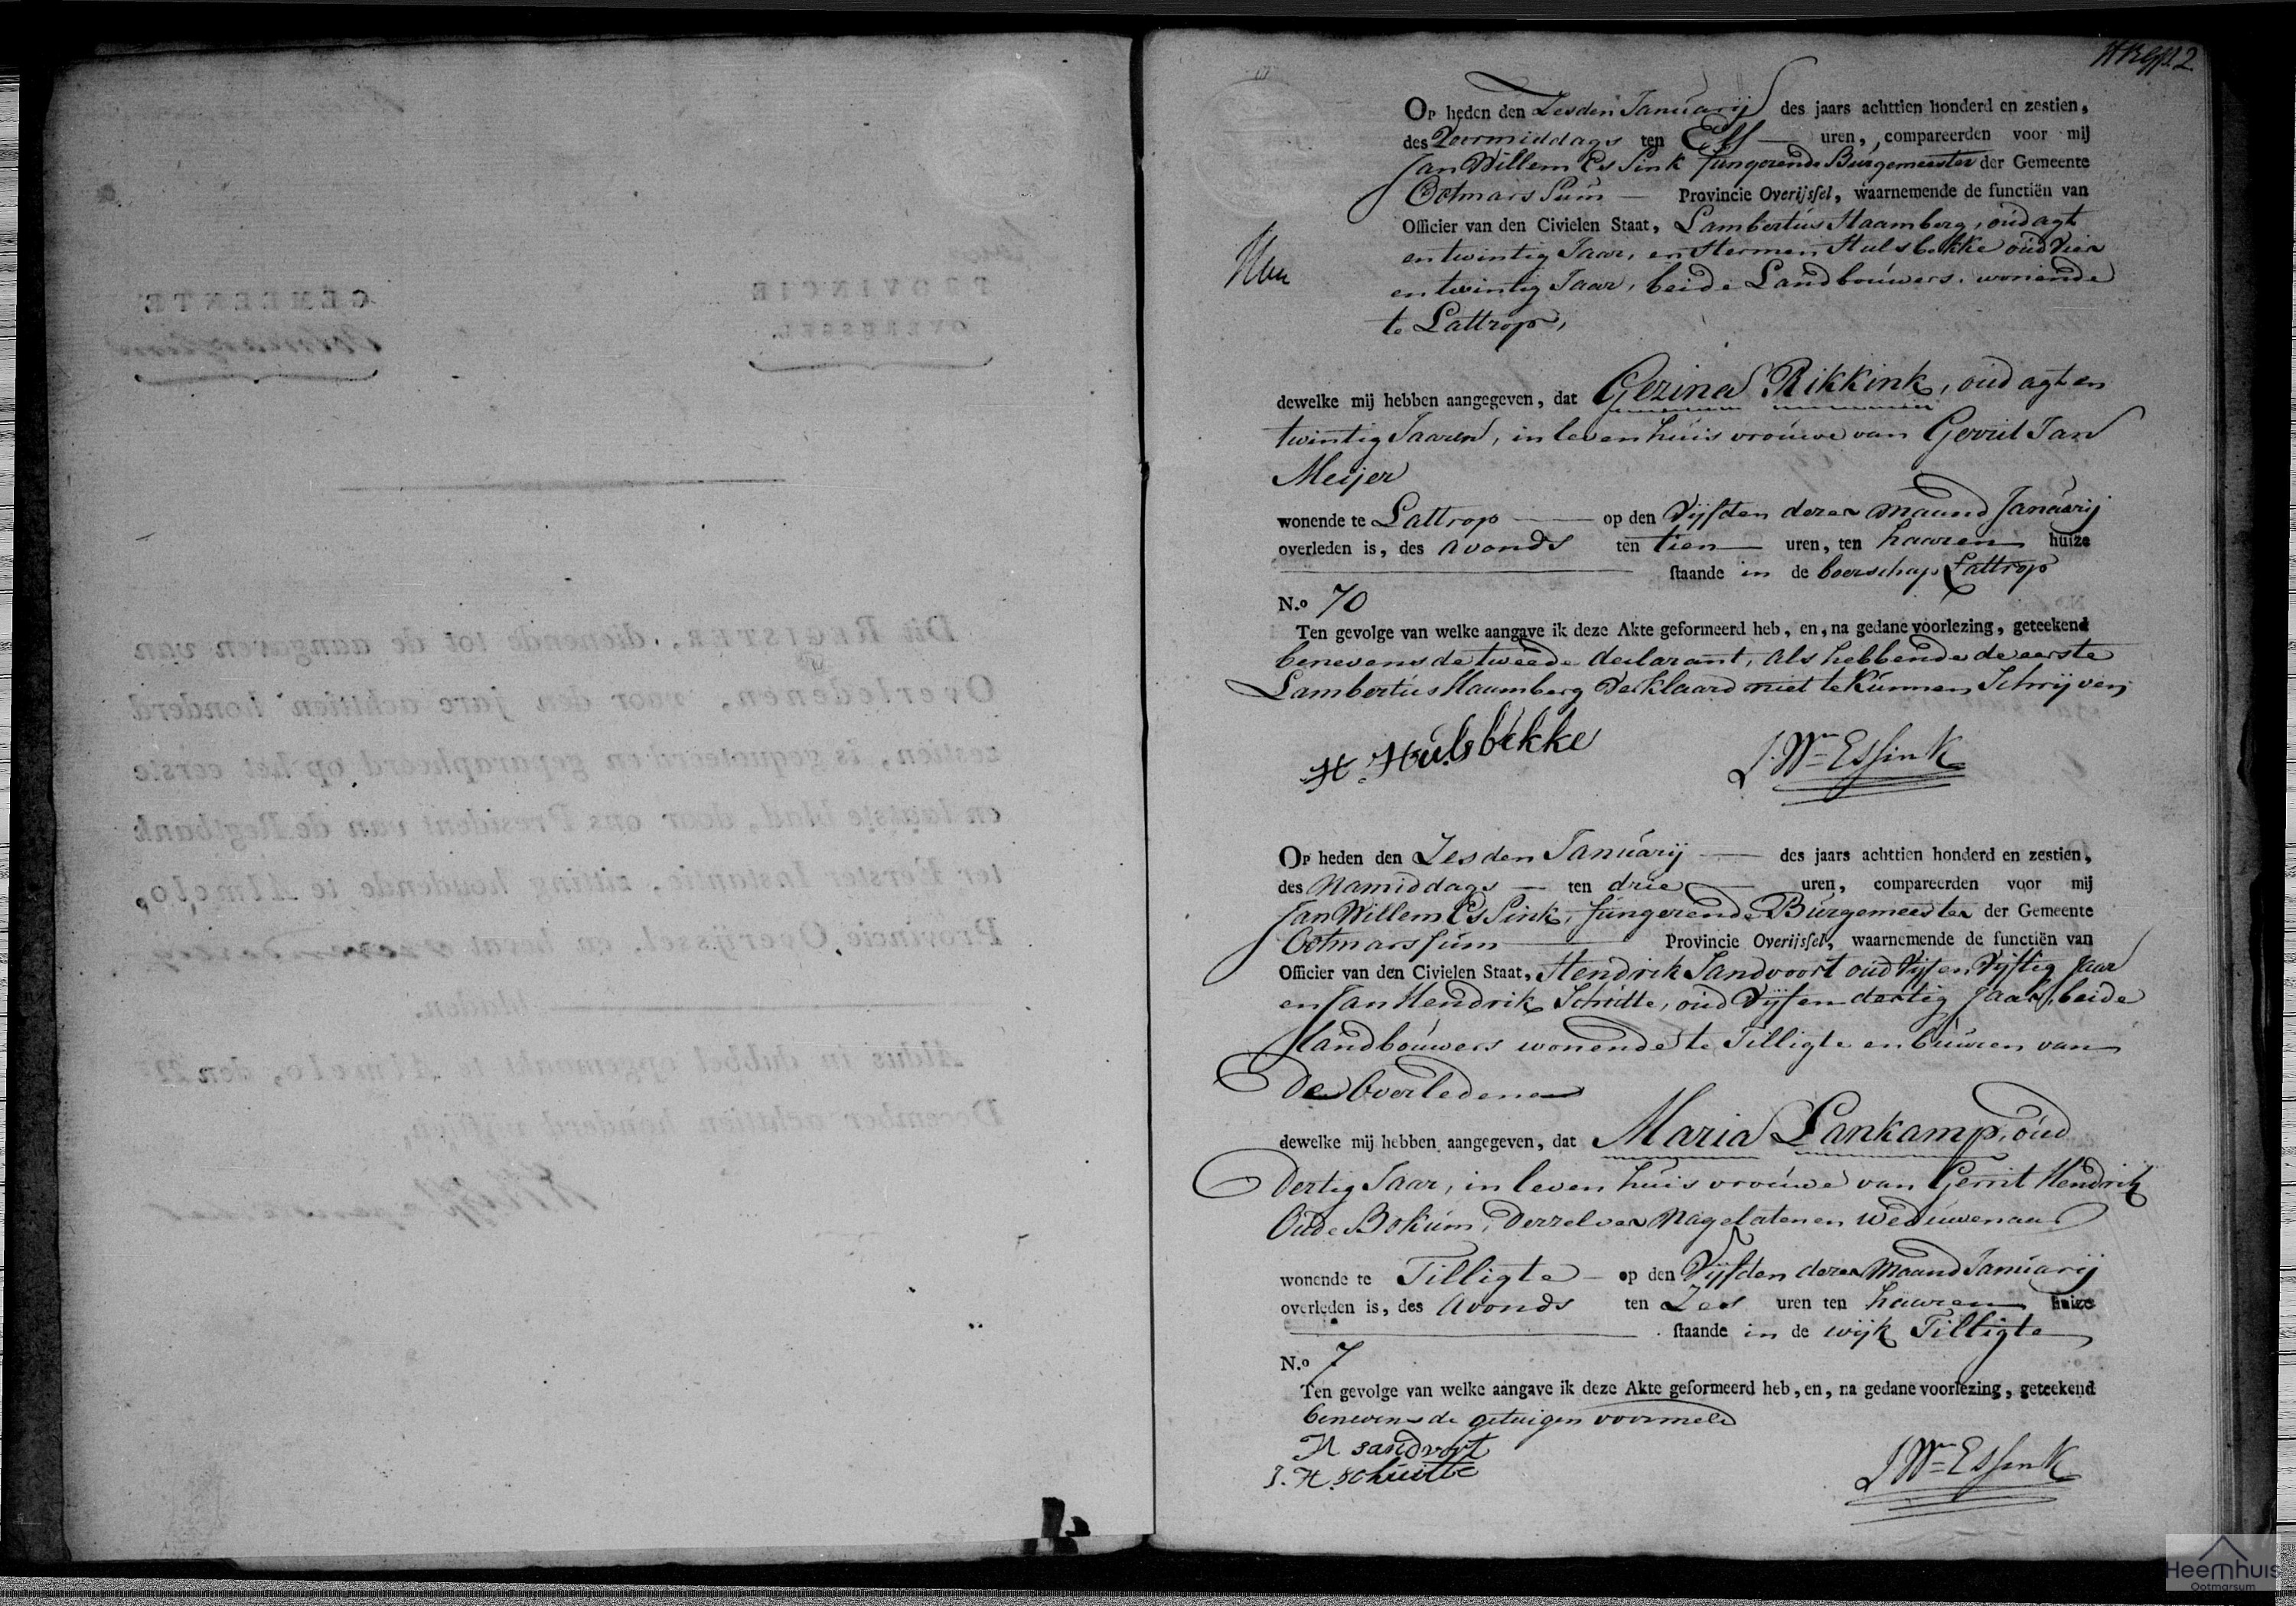 Op heden den Zesden Januarij des jaars achttien honderd en zestien,
des Voormiddags ten Elf uren, compareerden voor mij
Jan Willem Essink fungerende Burgemeester der Gemeente
Ootmarssum Provincie Overijssel, waarnemende de functiën van
Officier van den Civielen Staat, Lambertus Haamberg, oud agt
en twintig Jaar, en Hermen Hulsbekke oud vier
en twintig Jaar, beide Landbouwers, wonende
te Lattrop,
dewelke mij hebben aangegeven, dat Gezina Rikkink, oud agt en
twintig Jaaren, in leven huisvrouwe van Gerrit Jan
Meijer
wonende te Lattrop op den Vijfden dezer maand Januarij
overleden is, des Avonds ten tien uren, ten haaren huize
staande in de boerschap Lattrop
N.o 70
Ten gevolge van welke aangave ik deze Akte geformeerd heb, en, na gedane voorlezing, geteekend
benevens de tweede declarant, als hebbende de eerste
Lambertus Haamberg verklaard niet te kunnen Schrijven
H. Hulsbekke
J. Wm Essink
Op heden den Zesden Januarij des jaars achttien honderd en zestien,
des Namiddags ten drie uren, compareerden voor mij
Jan Willem Essink, fungerende Burgemeester der Gemeente
Ootmarssum Provincie Overijssel, waarnemende de functiën van
Officier van den Civielen Staat, Hendrik Sandvoort oud Vijf en Vijftig Jaar
en Jan Hendrik Schutte, oud Vijf en dertig Jaar, beide
Landbouwers wonende te Tilligte en buuren van
de Overledene
dewelke mij hebben aangegeven, dat Maria Lankamp, oud
Dertig Jaar, in leven huisvrouwe van Gerrit Hendrik
Oude Bokum, derzelver Nagelatenen Weduwenaar
wonende te Tilligte op den Vijfden dezer Maand Januarij
overleden is, des Avonds ten Zes uren ten haaren huize
staande in de wijk Tilligte
N.o 7
Ten gevolge van welke aangave ik deze Akte geformeerd heb, en, na gedane voorlezing, geteekend
benevens de getuigen voormeld
H sandvort
J. H. schuitte
J Wm Essink
Heemhuis
Ootmarsum